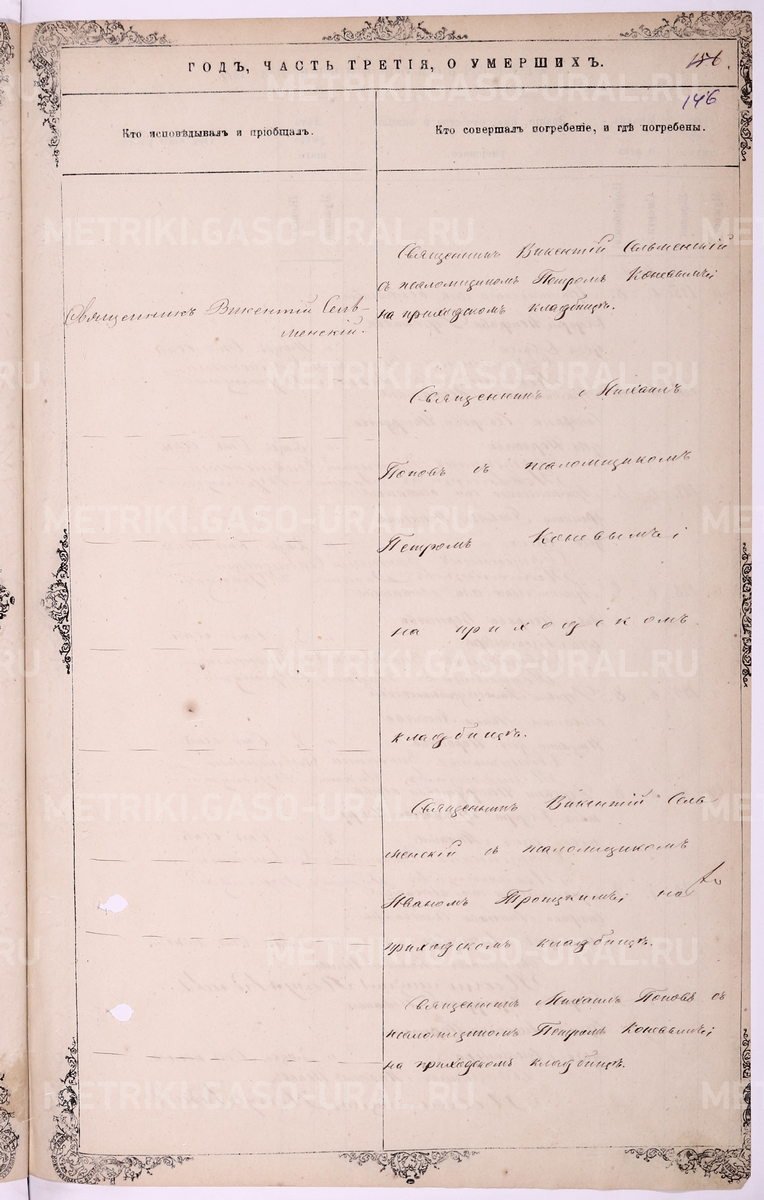 ГОДЪ, ЧАСТЬ ТРЕТІЯ, О УМЕРШИХЪ.
146
Кто исповѣдывалъ и пріобщалъ.
Кто совершалъ погребеніе, и гдѣ погребены.
Священникъ Викентій Сель-
менскій.
Священникъ Викентій Сельменскій
съ псаломщикомъ Петромъ
на приходскомъ кладбищѣ.
Священникъ Михаилъ
Поповъ съ псаломщикомъ
Петромъ
на приходскомъ
кладбищѣ.
Священникъ Викентій Сель-
менскій съ псаломщикомъ
Иваномъ Троицкимъ; на
приходскомъ кладбищѣ.
Священникъ Михаилъ Поповъ съ
псаломщикомъ Петромъ
на приходскомъ кладбищѣ.
METRIKI.GASO-URAL.RU